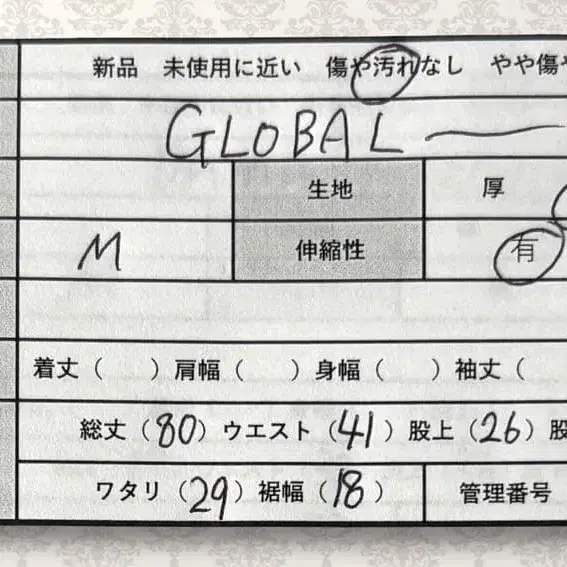 新品 未使用に近い 傷や汚れなし やや傷や
GLOBAL
生地 厚
M 伸縮性 有
着丈( )肩幅( )身幅( )袖丈(
総丈(80)ウエスト(41)股上(26)股
ワタリ(29)裾幅(18) 管理番号